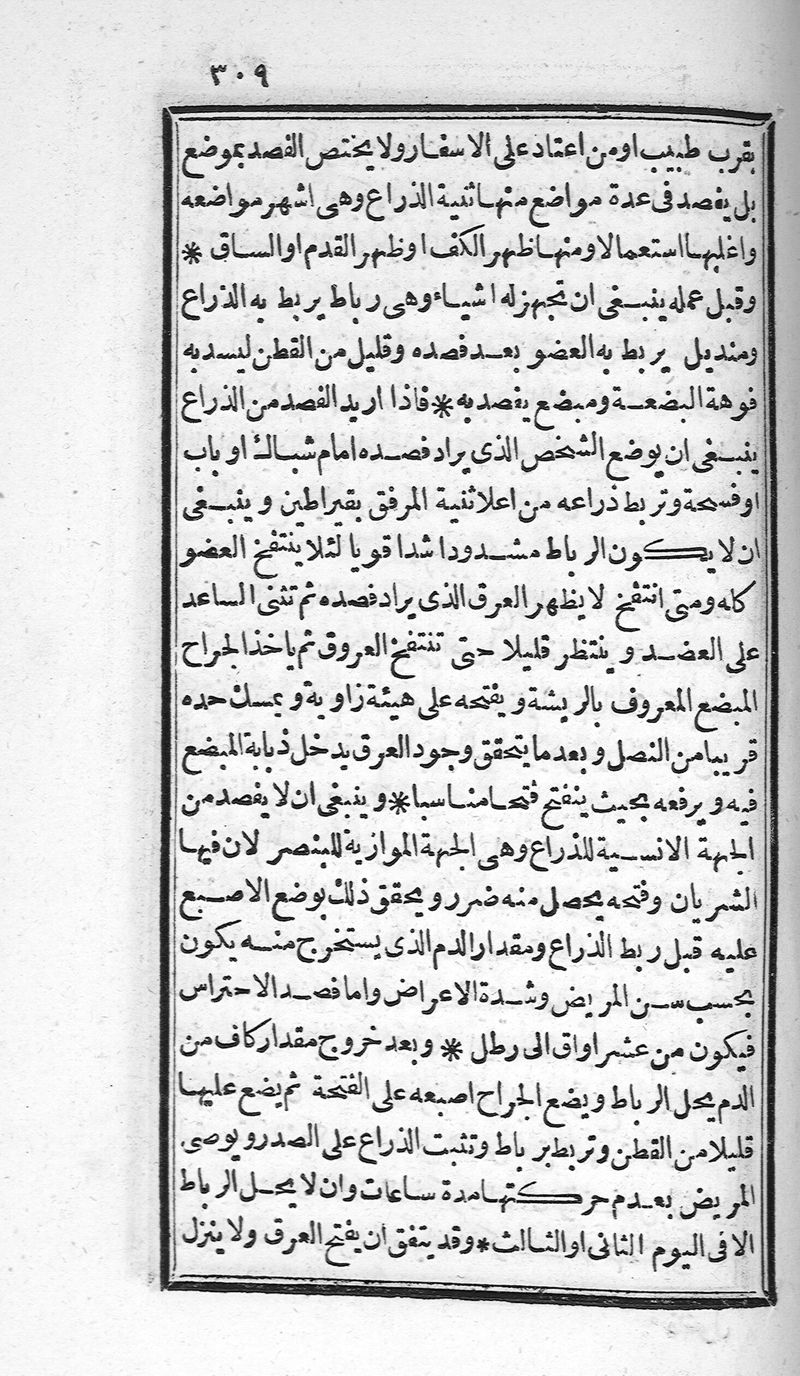 ٣٠٩
بقرب طبيب او من اعتاد على الاسفار ولا يختص الفصد بموضع
بل يفصد فى عدة مواضع منها ثنية الذراع وهى اشهر مواضعه
واغلبها استعمالا ومنها ظهر الكف او ظهر القدم او الساق *
وقبل عمله ينبغى ان تجهز له اشياء وهى رباط يربط به الذراع
ومنديل يربط به العضو بعد فصده وقليل من القطن ليسد به
فوهة البضعة ومبضع يفصد به * فاذا اريد الفصد من الذراع
ينبغى ان يوضع الشخص الذى يراد فصده امام شباك او باب
او فسحة وتربط ذراعه من اعلا ثنية المرفق بقيراطين وينبغى
ان لا يكون الرباط مشدودا شدا قويا لئلا ينتفخ العضو
كله ومتى انتفخ لا يظهر العرق الذى يراد فصده ثم تثنى الساعد
على العضد وينتظر قليلا حتى تنتفخ العروق ثم ياخذ الجراح
المبضع المعروف بالريشة ويفتحه على هيئة زاوية ويمسك حده
قريبا من النصل وبعد ما يتحقق وجود العرق يدخل ذبابة المبضع
فيه ويرفعه بحيث ينفتح فتحا مناسبا * وينبغى ان لا يفصد من
الجهة الانسية للذراع وهى الجهة الموازية للبنصر لان فيها
الشريان وفتحه يحصل منه ضرر ويحقق ذلك بوضع الاصبع
عليه قبل ربط الذراع ومقدار الدم الذى يستخرج منه يكون
بحسب سن المريض وشدة الاعراض واما فصد الاحتراس
فيكون من عشر اواق الى رطل * وبعد خروج مقدار كاف من
الدم يحل الرباط ويضع الجراح اصبعه على الفتحة ثم يضع عليها
قليلا من القطن وتربط برباط وتثبت الذراع على الصدر ويوصى
المريض بعدم حركتها مدة ساعات وان لا يحل الرباط
الا فى اليوم الثانى او الثالث * وقد يتفق ان يفتح العرق ولا ينزل